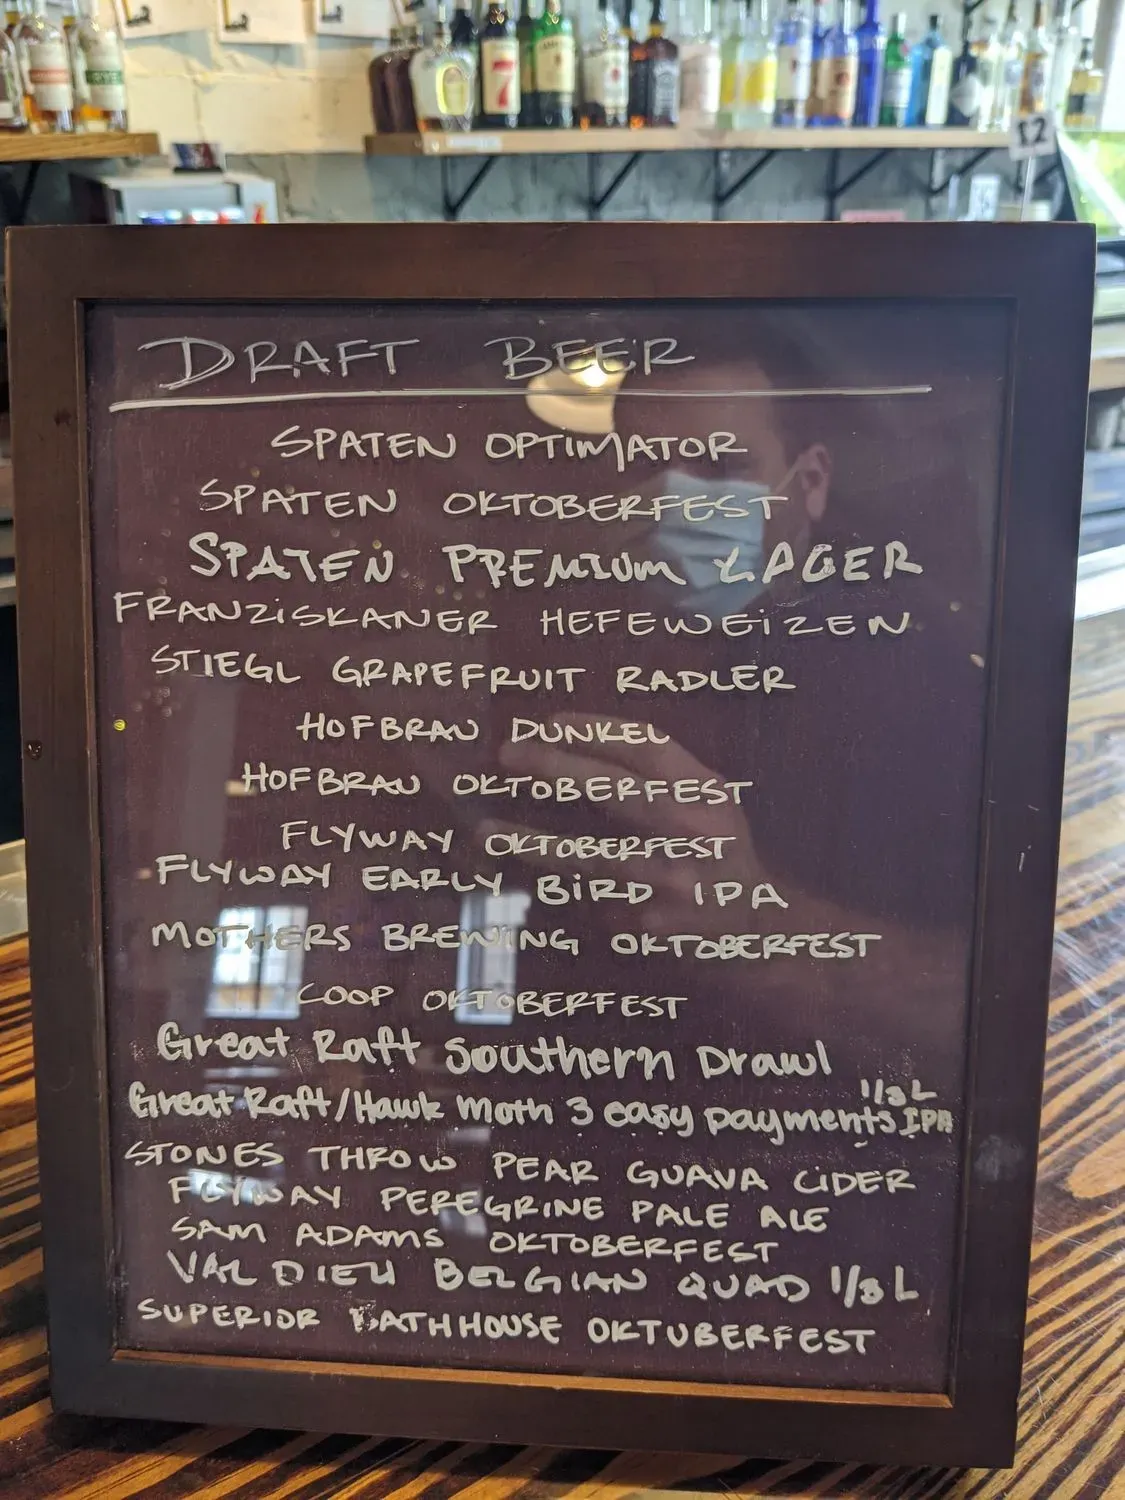 12
DRAFT BEER
SPATEN OPTIMATOR
SPATEN OKTOBERFEST
SPATEN PREMIUM LAGER
FRANZISKANER HEFEWEIZEN
STIEGL GRAPEFRUIT RADLER
HOFBRAU DUNKEL
HOFBRAU OKTOBERFEST
FLYWAY OKTOBERFEST
FLYWAY EARLY BIRD IPA
MOTHERS BREWING OKTOBERFEST
COOP OKTOBERFEST
Great Raft Southern Drawl
1/3 L
Great Raft/Hawk Moth 3 easy payments IPA
STONES THROW PEAR GUAVA CIDER
FLYWAY PEREGRINE PALE ALE
SAM ADAMS OKTOBERFEST
VAL DIEU BELGIAN QUAD 1/3 L
SUPERIOR BATHHOUSE OKTUBERFEST